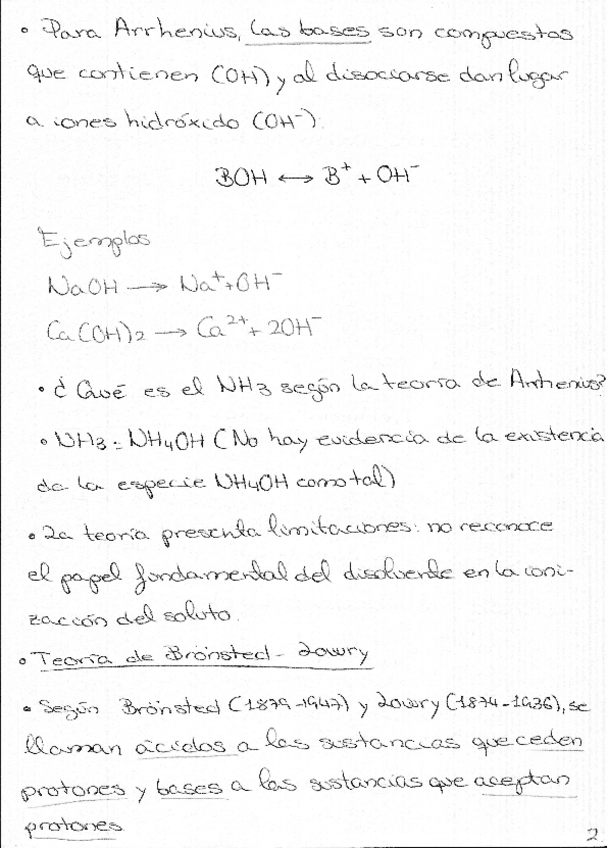 • Para Arrhenius, las bases son compuestos
que contienen (OH) y al disociarse dan lugar
a iones hidróxido (OH⁻).
BOH ⟷ B⁺ + OH⁻
Ejemplos
NaOH ⟶ Na⁺ + OH⁻
Ca(OH)2 ⟶ Ca²⁺ + 2OH⁻
• ¿Qué es el NH3 según la teoría de Arrhenius?
• NH3 = NH4OH (No hay evidencia de la existencia
de la especie NH4OH como tal)
• La teoría presenta limitaciones: no reconoce
el papel fundamental del disolvente en la ioni-
zación del soluto.
• Teoría de Brönsted - Lowry
• Según Brönsted (1879-1947) y Lowry (1874-1936), se
llaman ácidos a las sustancias que ceden
protones y bases a las sustancias que aceptan
protones
2